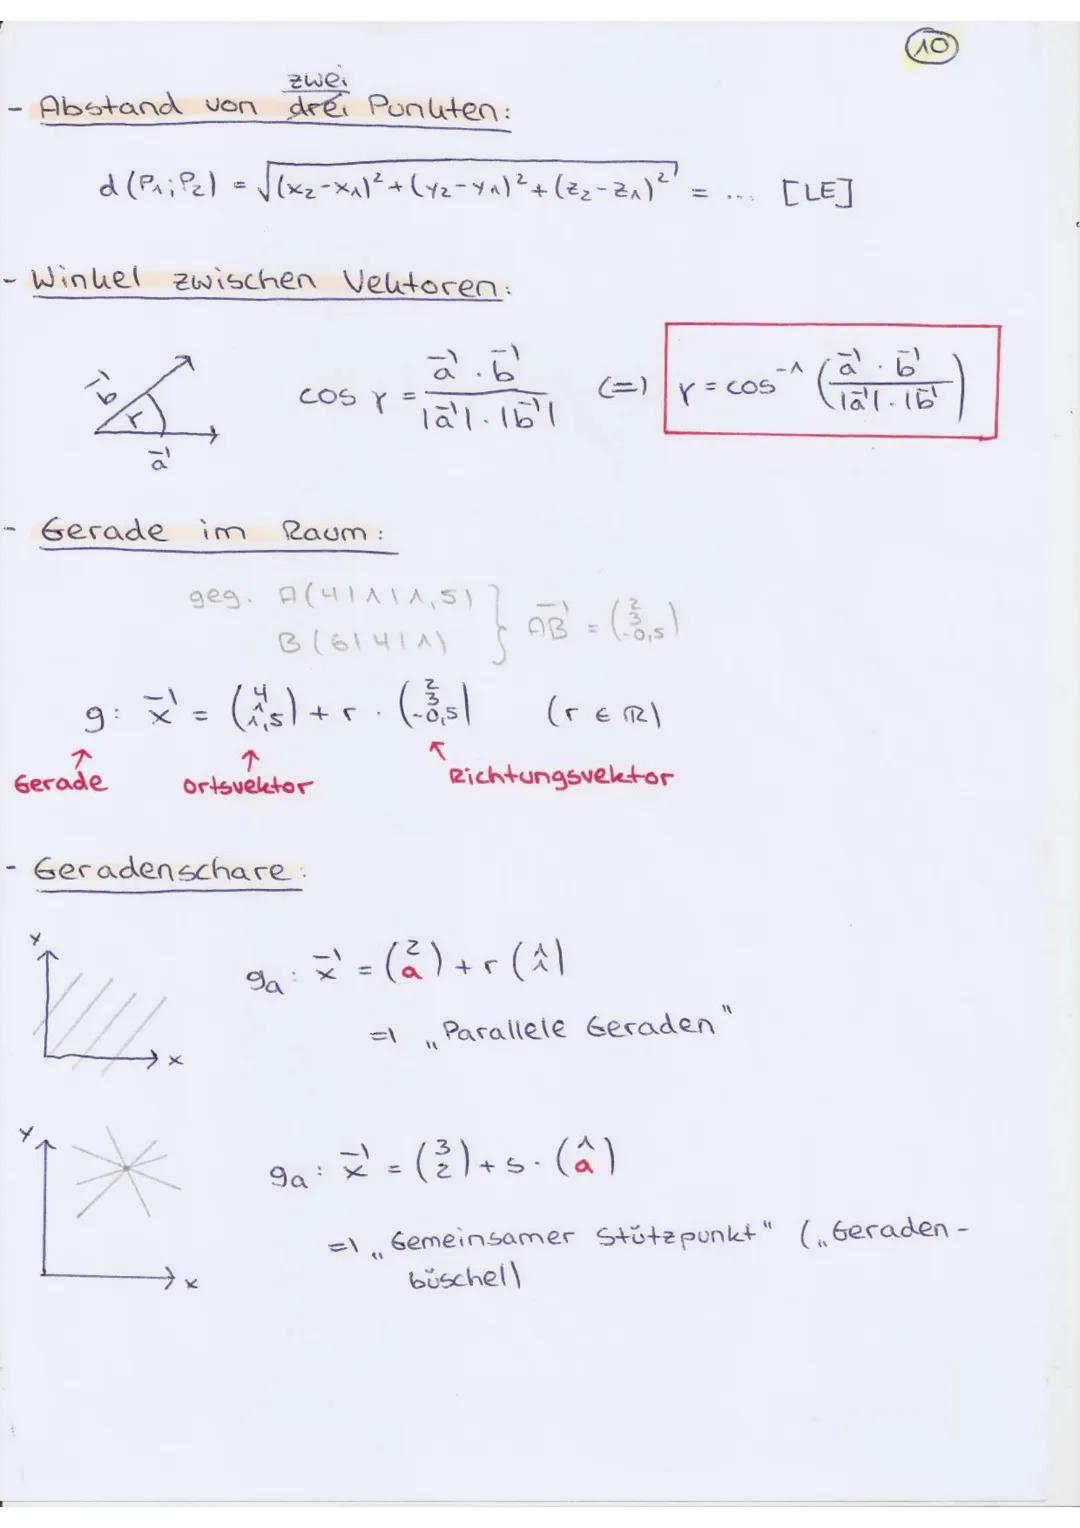 10
zwei
- Abstand von drei Punkten:
d (P₁; P₂) = √(x₂-x₁)² + (y₂-y₁)² + (z₂-z₁)² = ... [LE]
- Winkel zwischen Vektoren:
b⃗ γ a⃗
cos γ = a⃗ · b⃗ / |a⃗| · |b⃗| (=) γ = cos⁻¹ (a⃗ · b⃗ / |a⃗| · |b⃗|)
- Gerade im Raum:
geg. A(4|1|1,5)
B(6|4|1) } AB⃗ = (2 3 -0,5)
g: x⃗ = (4 1 1,5) + r · (2 3 -0,5) (r ∈ ℝ)
Gerade Ortsvektor Richtungsvektor
- Geradenschare:
y
ga: x⃗ = (2 a) + r (1 1)
=) „Parallele Geraden"
x
y
ga: x⃗ = (3 2) + s · (1 a)
=) „Gemeinsamer Stützpunkt" („Geraden-
büschel)
x